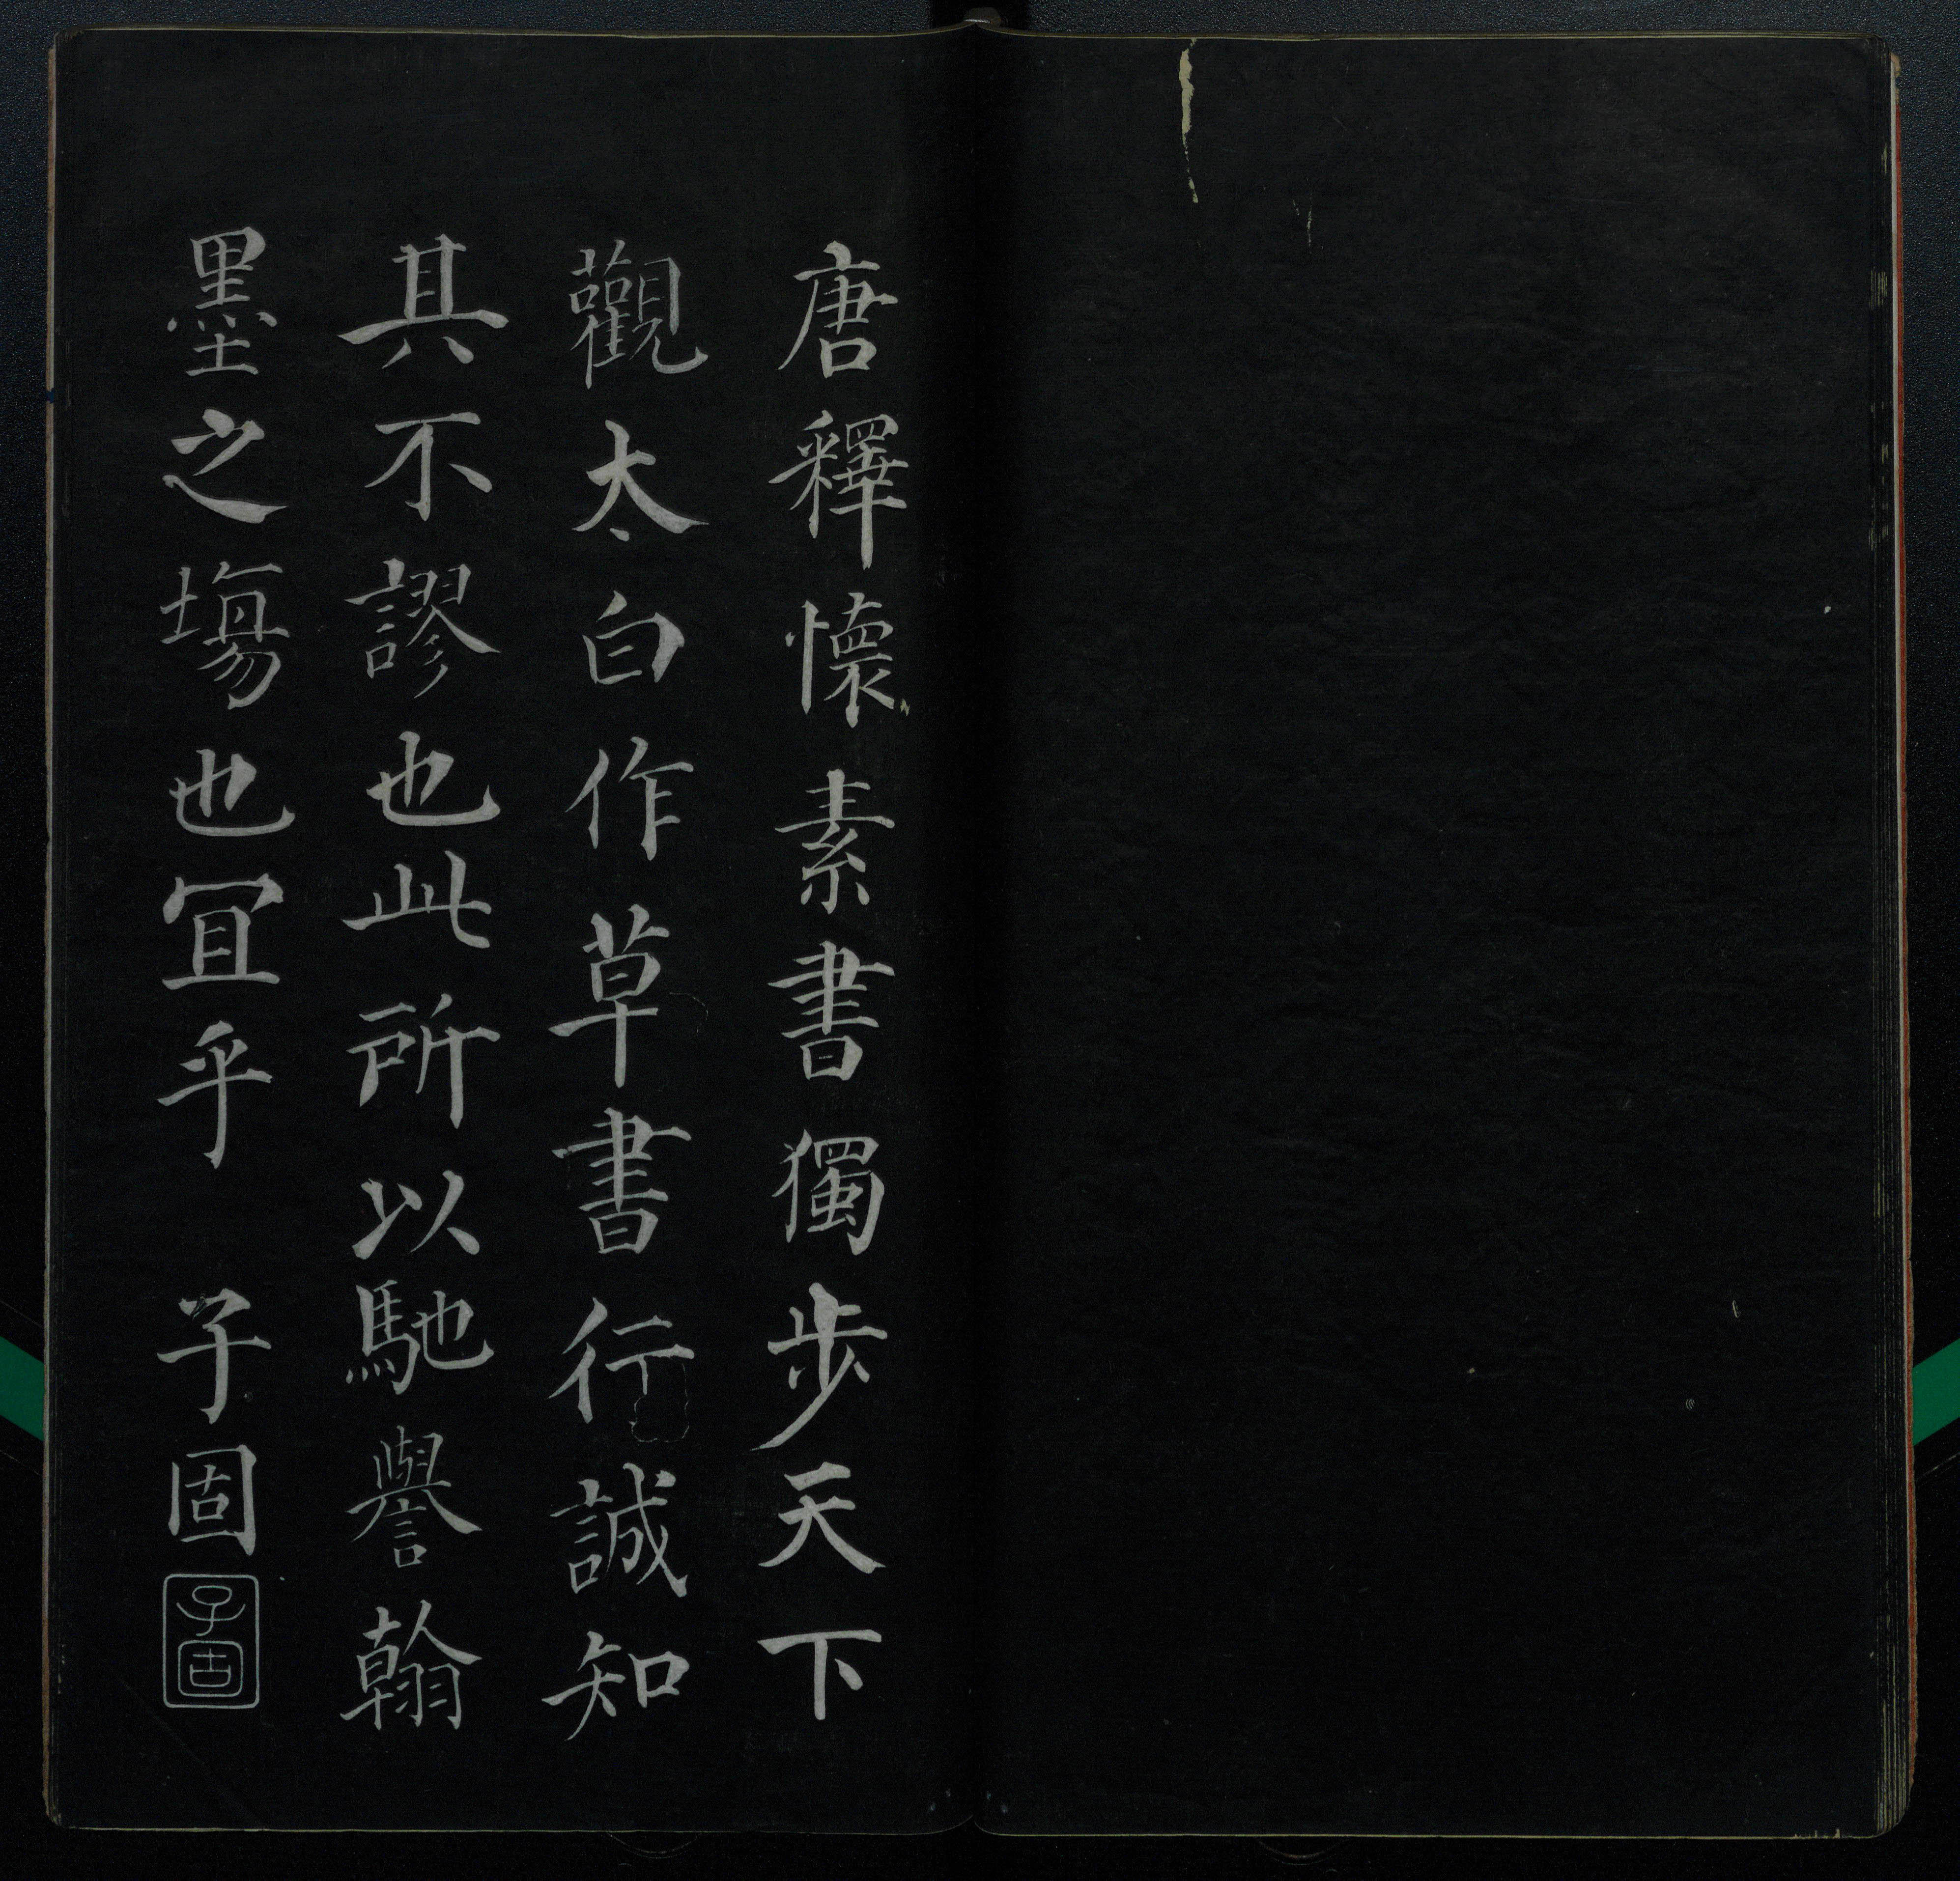 唐釋懷素書獨步天下
觀太白作草書行誠知
其不謬也此所以馳譽翰
墨之塲也冝乎 子固
子固